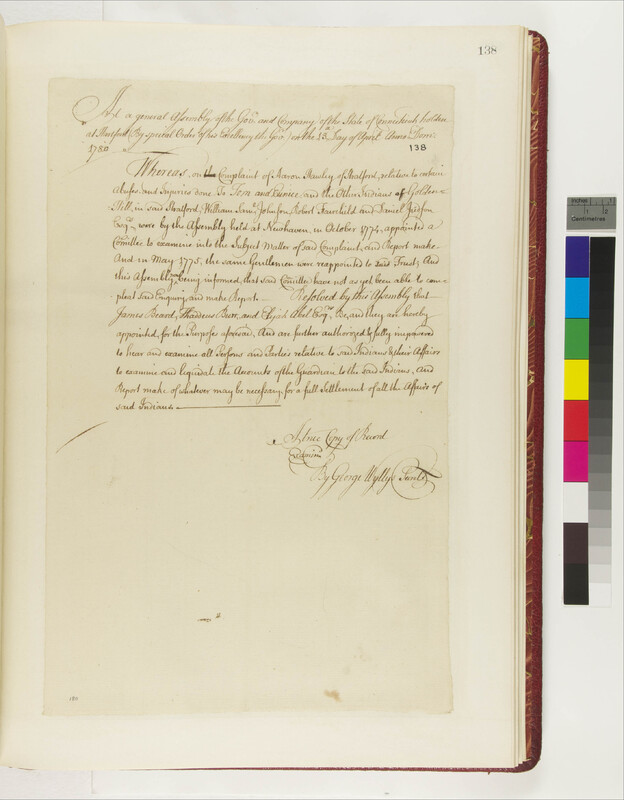 138
At a general Assembly of the Gov.r and Company of the State of Connecticut holden
at Hartford (By special Order of his Excellency the Gov.r) on the 13th Day of April Anno Dom:
1780
138
Whereas, on the Complaint of Aaron Hawley of Stratford, relative to certain
Abuses and Injuries done To Tom and Eunice and the Other Indians of Golden-
Hill, in said Stratford; William Sam.l Johnson, Robert Fairchild and Daniel Judson
Esq.rs were by the Assembly held at Newhaven, in October 1774, appointed a
Comittee to examine into the Subject Matter of said Complaint, and Report make
And in May 1775, the same Gentlemen were reappointed to said Trust; And
this Assembly now being informed, that said Comittee have not as yet been able to com-
pleat said Enquiry and make Report.— Resolved by this Assembly that
James Beard, Thaddeus Burr, and Elijah Abel Esq.rs Be, and they are hereby
appointed, for the Purpose aforesaid, And are further authorized & fully impowered
to hear and examine all Persons and Parties relative to said Indians & their Affairs
to examine and liquidate the Accounts of the Guardian to the said Indians, And
Report make of whatever may be necessary, for a full Settlement of all the Affairs of
said Indians.—
A true Copy of Record
Examin.d
By George Wyllys Secret.y
Inches
1
2
Centimetres